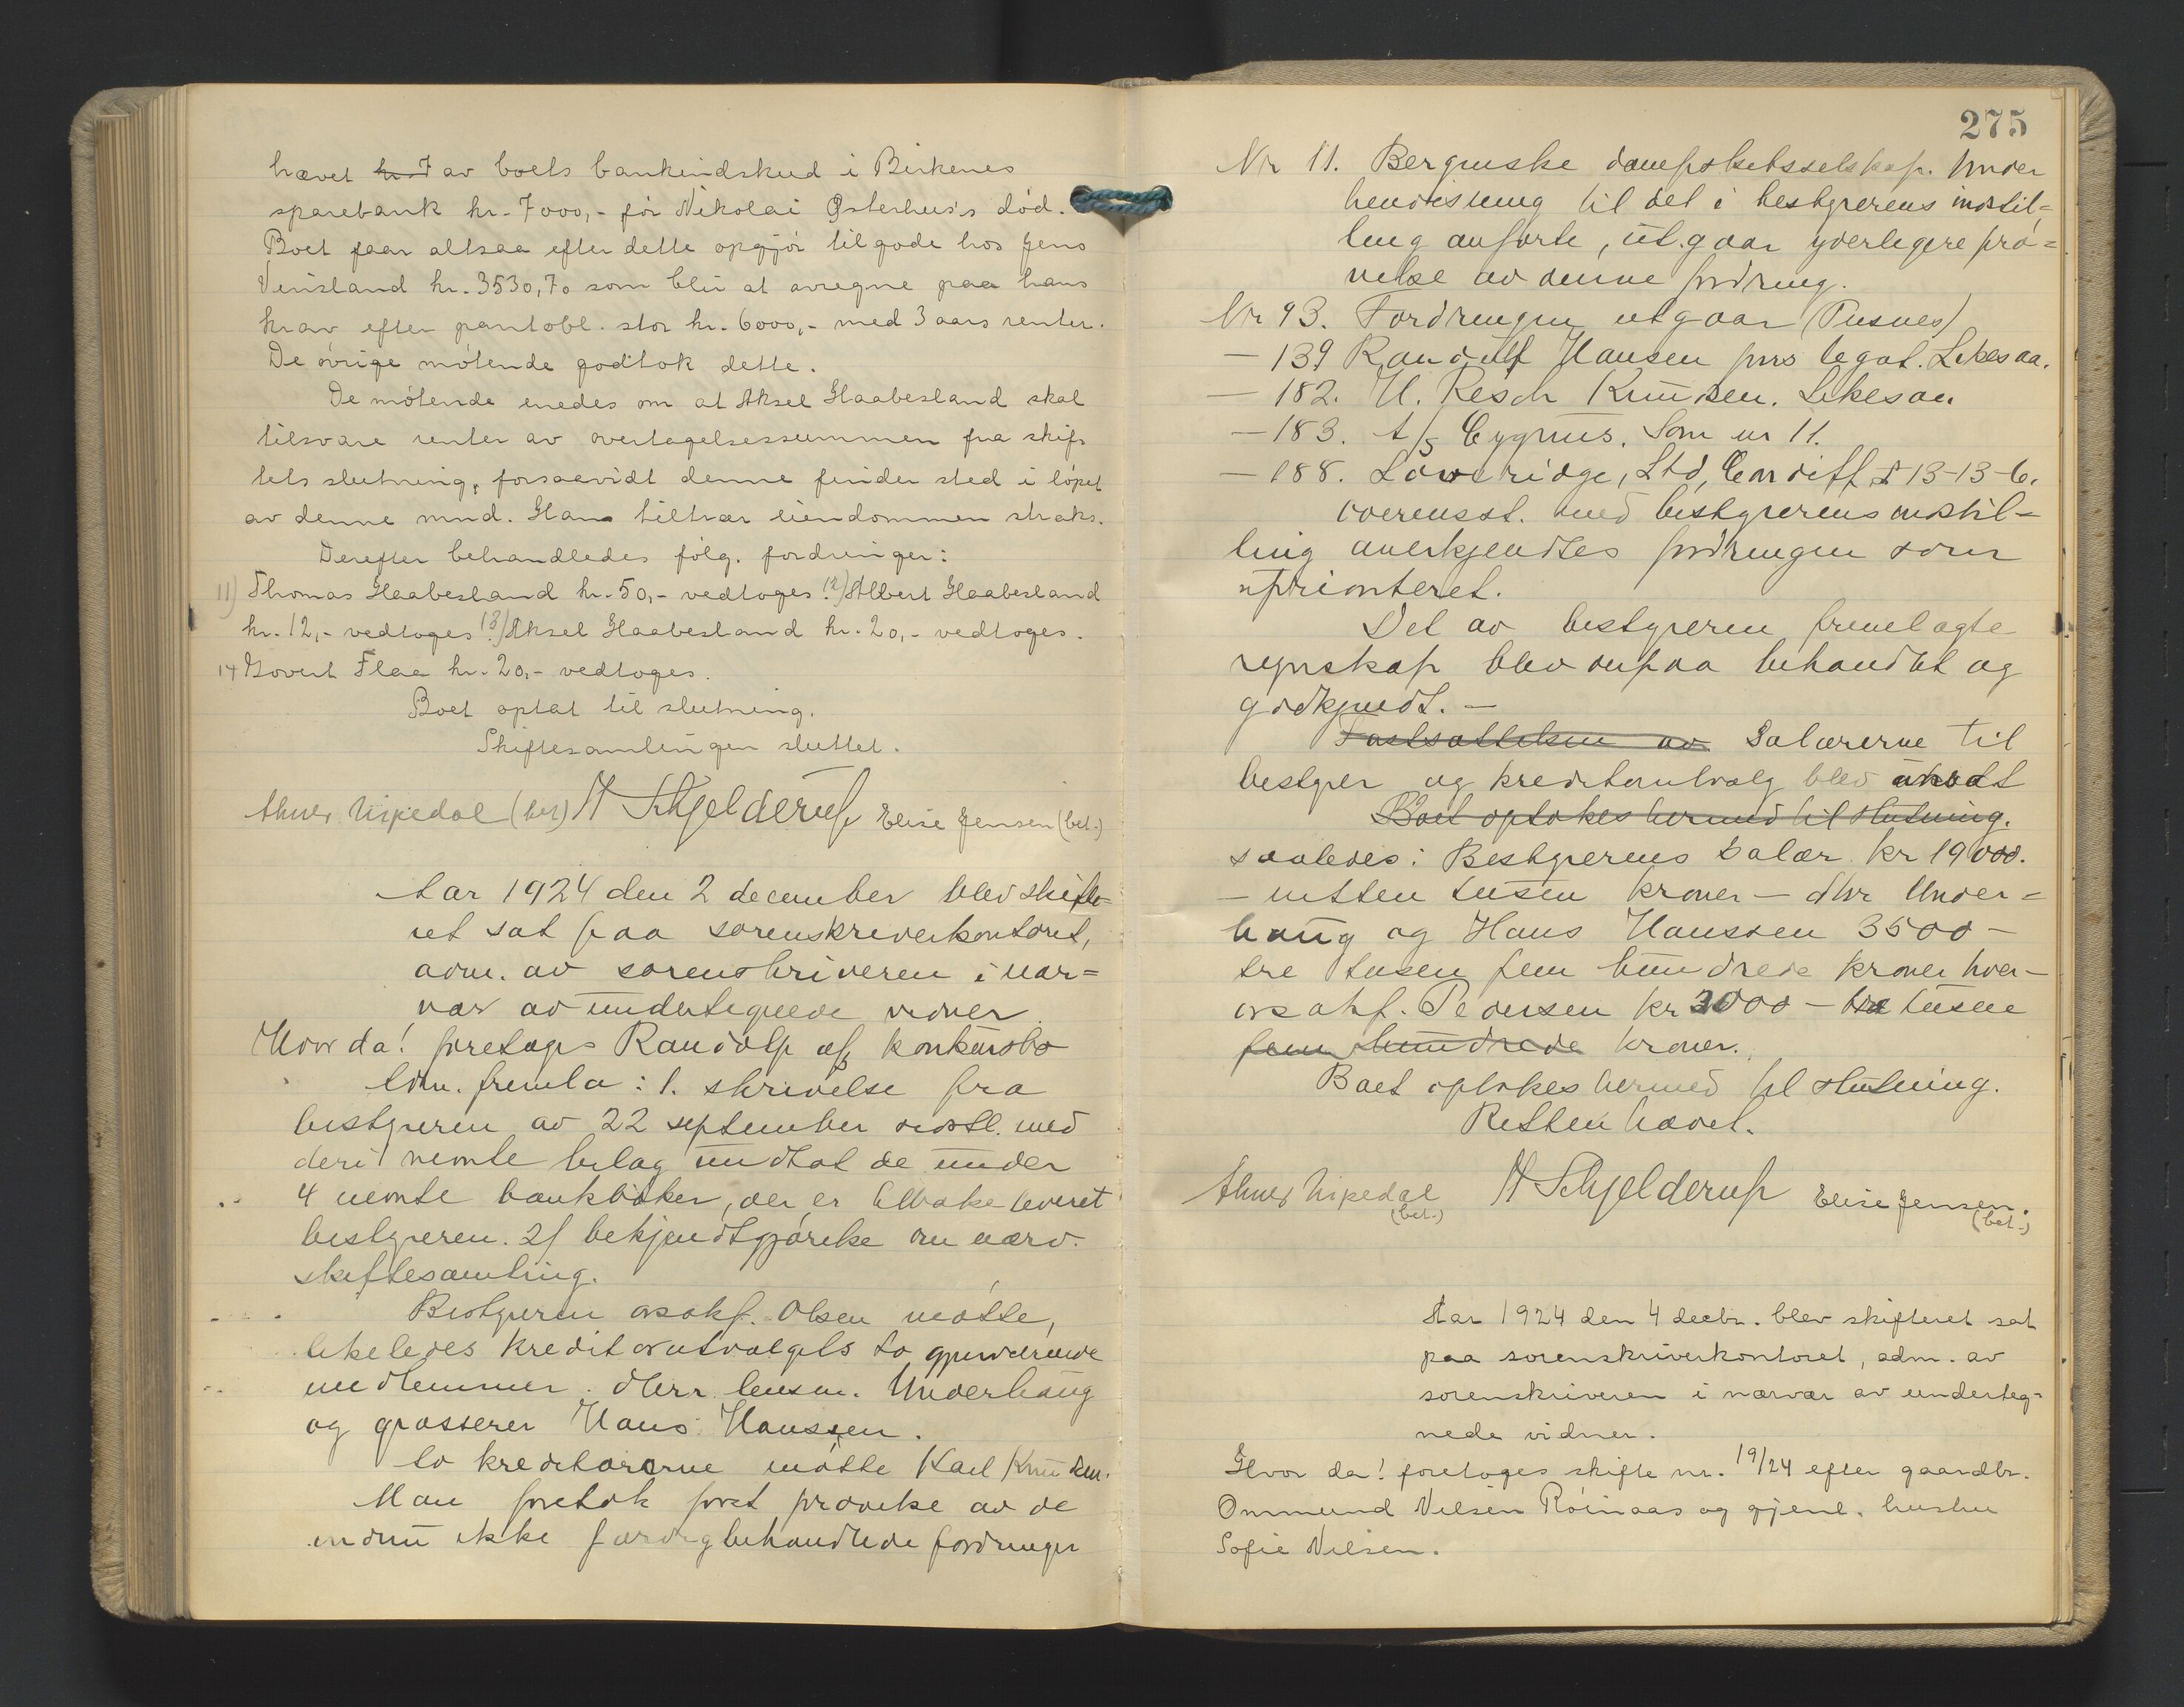 hævet kr. 7 av boets bankindskud i Birkenes
sparebank kr. 7000,- før Nikolai Østerhus's død.
Boet faar altsaa efter dette opgjør tilgode hos Jens
Venisland kr. 3530,70 som blir at avregne paa hans
krav efter pantobl. stor kr. 6000,- med 3 aars renter.
De øvrige møtende godtok dette.
De møtende enedes om at Aksel Haabesland skal
tilsvare renter av overtagelsessummen fra skif-
tets slutning, forsaavidt denne finder sted i løpet
av denne mnd. Han tiltrær eiendommen straks.
Derefter behandledes følg. fordringer:
11) Thomas Haabesland kr. 50,- vedtoges. 12) Albert Haabesland
kr. 12,- vedtoges. 13) Aksel Haabesland kr. 20,- vedtoges.
14 Govert Flaa kr. 20,- vedtoges.
Boet optat til slutning.
Skiftesamlingen sluttet.
(bet) H Schjelderup Elise Jensen (bet.)
Aar 1924 den 2 december blev skifte-
ret sat paa sorenskriverkontoret,
adm. av sorenskriveren i nær-
vær av undertegnede vidner.
Hvor da! foretages Randolf a/s konkursbo
Adm. fremla: 1. skrivelse fra
bestyreren av 22 september sidstl. med
deri nevnte bilag undtat de under
4 nevnte bankbøker, der er tilbakeleveret
bestyreren. 2/ bekjendtgjørelse om nærv.
skiftesamling.
Bestyreren o.r.sakf. Olsen møtte,
likeledes kreditorutvalgets to gjenværende
medlemmer. Herr lensm. Underhaug
og grosserer Hans Hanssen.
Av kreditorerne møtte Karl Knudsen.
Man foretok først prøvelse av de
endnu ikke færdigbehandlede fordringer
275
Nr 11. Bergenske dampskibsselskap. Under
henvisning til det i bestyrerens indstil=
ling anførte, utgaar yderligere prø=
velse av denne fordring.
Nr 93. Fordringen utgaar (Pusnes)
— 139 Randulf Hansens legat. Likesaa.
— 182. H. Resch Knudsen. Likesaa
— 183. A/S Cygnus. Som nr 11.
— 188. Lowridge, Ltd, Cardiff £ 13-13-6.
Overensst. med bestyrerens indstil-
ling anerkjendtes fordringen som
uprioritert.
Det av bestyreren fremlagte
regnskap blev derpaa behandlet og
godkjendt. —
Fastsættelsen av Salærerne til
bestyrer og kreditorutvalg blev ansat
Boet optokes hermed til slutning.
saaledes: Bestyrerens salær kr 19000.
— nitten tusen kroner — Hr Under=
haug og Hans Hanssen 3500 —
tre tusen fem hundrede kroner hver —
o.r.sakf. Pedersen kr 3000 — tre tusen
fem hundrede kroner.
Boet optokes hermed til slutning.
Retten hævet.
H Schjelderup Elise Jensen.
(bet.) (bet.)
Aar 1924 den 4 decbr. blev skifteret sat
paa sorenskriverkontoret, adm. av
sorenskriveren i nærvær av underteg-
nede vidner.
Hvor da! foretoges skifte nr. 19/24 efter gaardbr.
Ommund Nilsen Røinaas og gjenl. hustru
Sofie Nilsen.